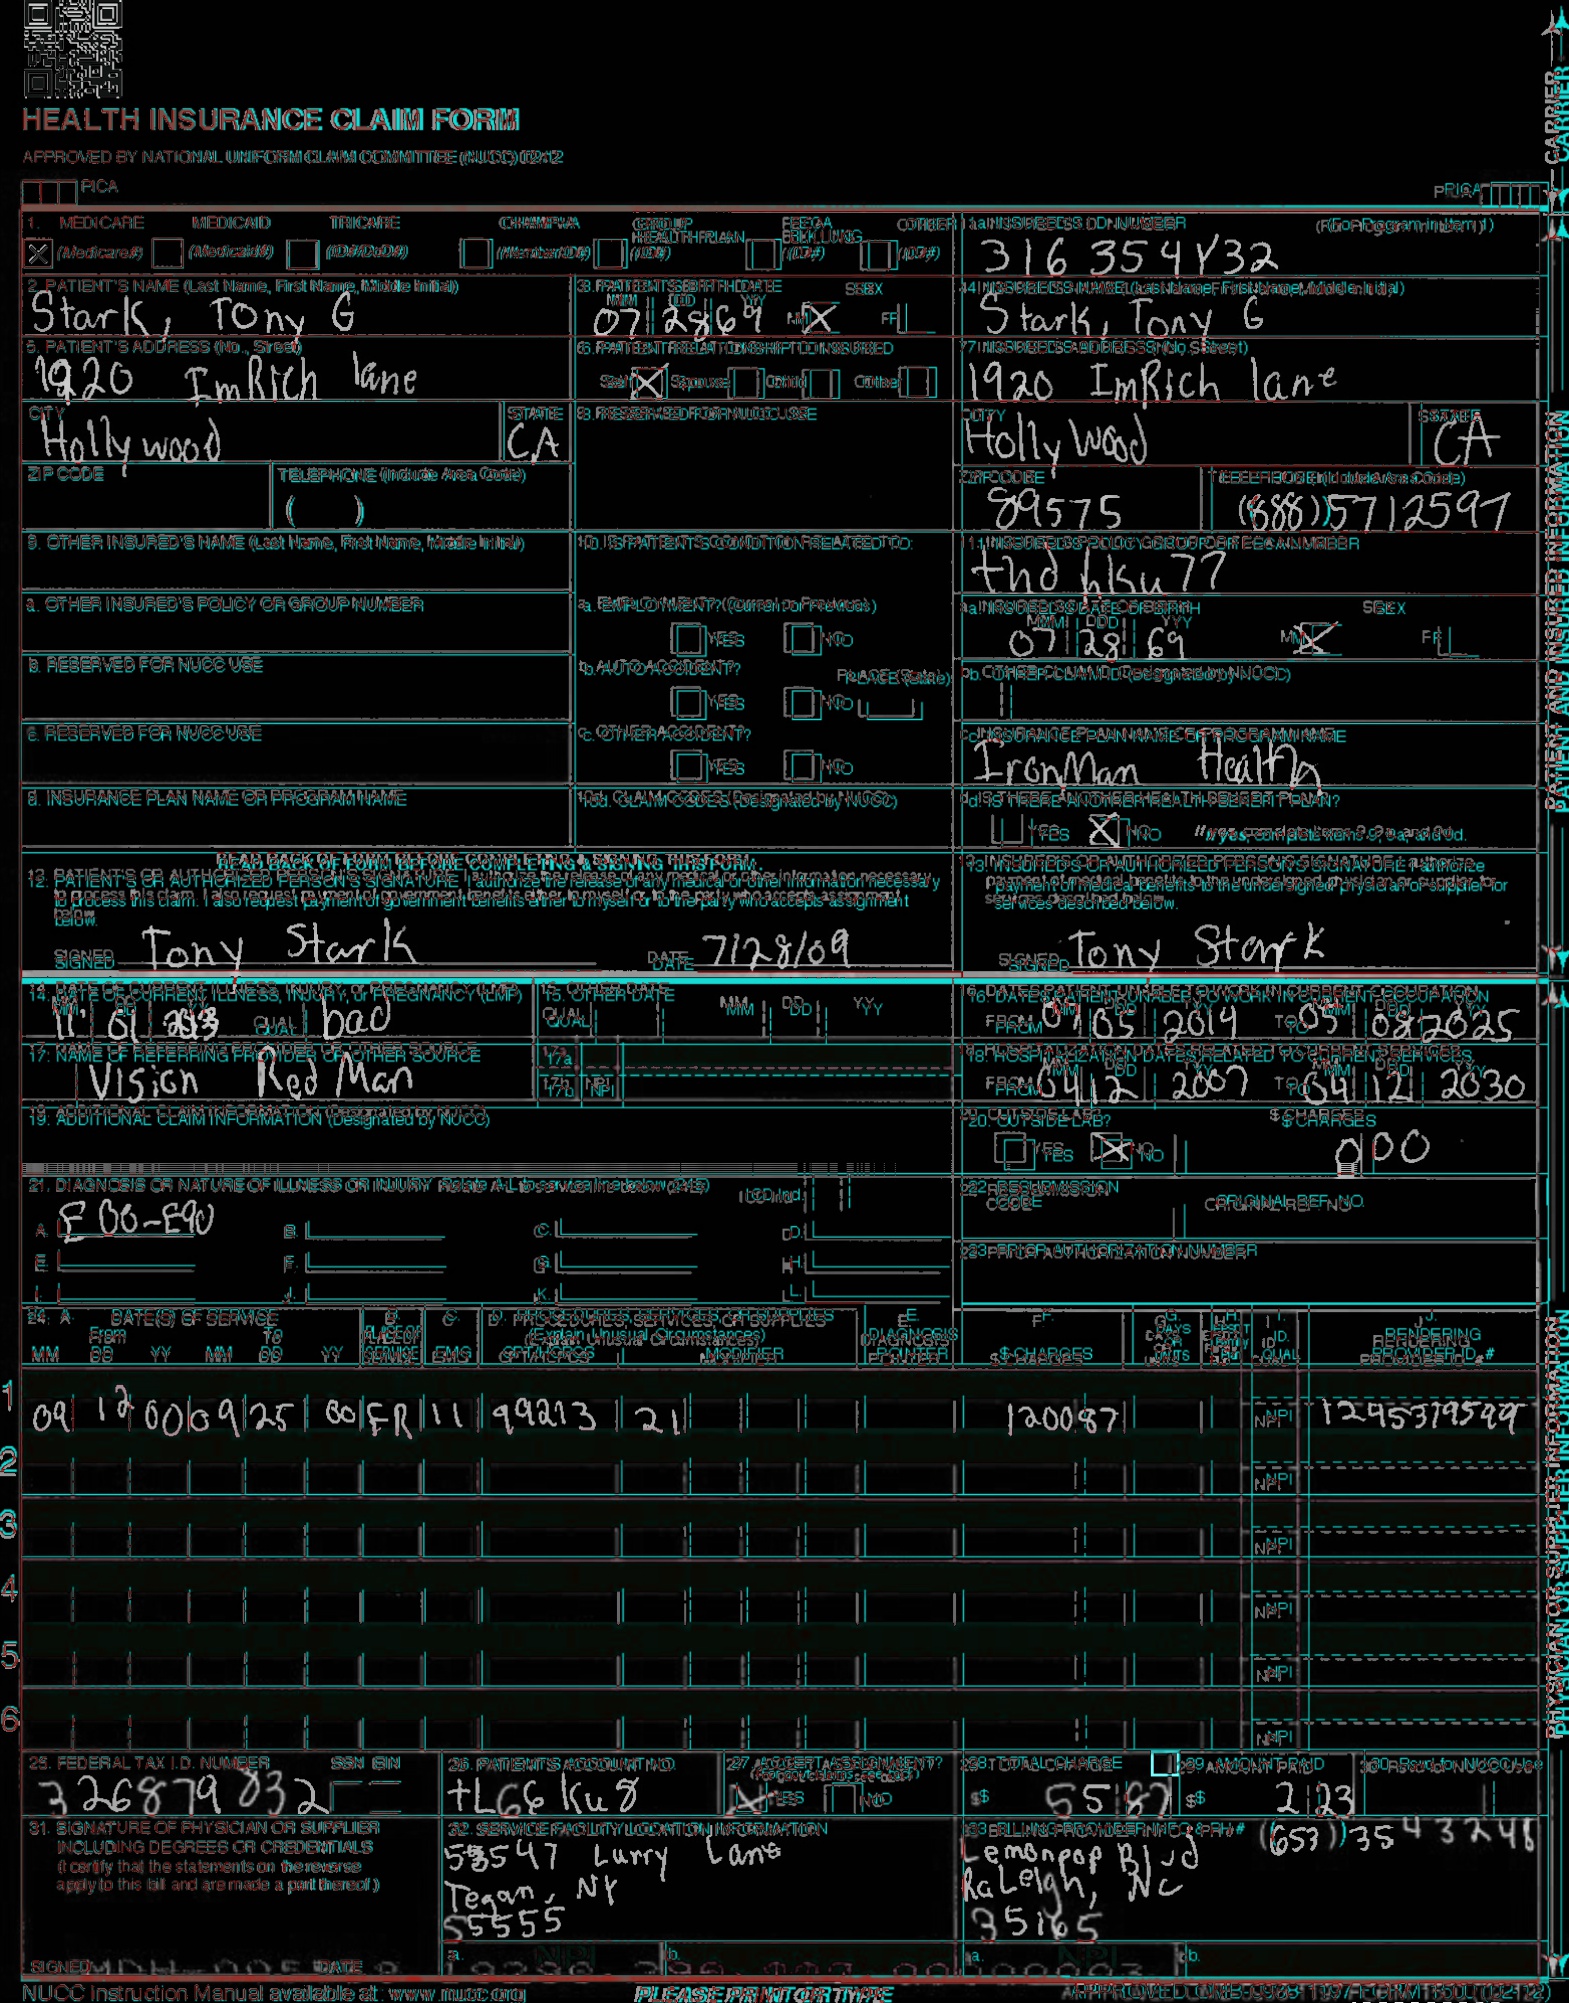 HEALTH INSURANCE CLAIM FORM
APPROVED BY NATIONAL UNIFORM CLAIM COMMITTEE (NUCC) 02/12
PICA
PICA
CARRIER
1. MEDICARE MEDICAID TRICARE CHAMPVA GROUP HEALTH PLAN FECA BLK LUNG OTHER
(Medicare#) (Medicaid#) (ID#/DoD#) (Member ID#) (ID#) (ID#) (ID#)
1a. INSURED'S I.D. NUMBER (For Program in Item 1)
316 354Y32
2. PATIENT'S NAME (Last Name, First Name, Middle Initial)
Stark, Tony G
3. PATIENT'S BIRTH DATE SEX
MM DD YY
07 28 69 M F
4. INSURED'S NAME (Last Name, First Name, Middle Initial)
Stark, Tony G
5. PATIENT'S ADDRESS (No., Street)
1920 ImRich lane
6. PATIENT RELATIONSHIP TO INSURED
Self Spouse Child Other
7. INSURED'S ADDRESS (No., Street)
1920 ImRich lane
CITY STATE
Hollywood CA
8. RESERVED FOR NUCC USE
CITY STATE
Hollywood CA
ZIP CODE TELEPHONE (Include Area Code)
( )
ZIP CODE TELEPHONE (Include Area Code)
89575 (888) 5712597
9. OTHER INSURED'S NAME (Last Name, First Name, Middle Initial)
10. IS PATIENT'S CONDITION RELATED TO:
11. INSURED'S POLICY GROUP OR FECA NUMBER
thd hksu77
a. OTHER INSURED'S POLICY OR GROUP NUMBER
a. EMPLOYMENT? (Current or Previous)
YES NO
a. INSURED'S DATE OF BIRTH SEX
MM DD YY
07 28 69 M F
b. RESERVED FOR NUCC USE
b. AUTO ACCIDENT? PLACE (State)
YES NO
b. OTHER CLAIM ID (Designated by NUCC)
c. RESERVED FOR NUCC USE
c. OTHER ACCIDENT?
YES NO
c. INSURANCE PLAN NAME OR PROGRAM NAME
IronMan Health
d. INSURANCE PLAN NAME OR PROGRAM NAME
10d. CLAIM CODES (Designated by NUCC)
d. IS THERE ANOTHER HEALTH BENEFIT PLAN?
YES NO If yes, complete items 9, 9a, and 9d.
READ BACK OF FORM BEFORE COMPLETING & SIGNING THIS FORM.
12. PATIENT'S OR AUTHORIZED PERSON'S SIGNATURE I authorize the release of any medical or other information necessary
to process this claim. I also request payment of government benefits either to myself or to the party who accepts assignment
below.
SIGNED Tony Stark DATE 7/28/09
13. INSURED'S OR AUTHORIZED PERSON'S SIGNATURE I authorize
payment of medical benefits to the undersigned physician or supplier for
services described below.
SIGNED Tony Stark
PATIENT AND INSURED INFORMATION
14. DATE OF CURRENT ILLNESS, INJURY, or PREGNANCY (LMP)
MM DD YY
11 01 2013 QUAL. bad
15. OTHER DATE
QUAL. MM DD YY
16. DATES PATIENT UNABLE TO WORK IN CURRENT OCCUPATION
MM DD YY MM DD YY
FROM 09 05 2019 TO 05 08 2025
17. NAME OF REFERRING PROVIDER OR OTHER SOURCE
Vision Red Man
17a.
17b. NPI
18. HOSPITALIZATION DATES RELATED TO CURRENT SERVICES
MM DD YY MM DD YY
FROM 04 12 2007 TO 04 12 2030
19. ADDITIONAL CLAIM INFORMATION (Designated by NUCC)
20. OUTSIDE LAB? $ CHARGES
YES NO 0 00
21. DIAGNOSIS OR NATURE OF ILLNESS OR INJURY Relate A-L to service line below (24E)
ICD Ind.
A. E00-E90 B. C. D.
E. F. G. H.
I. J. K. L.
22. RESUBMISSION CODE ORIGINAL REF. NO.
23. PRIOR AUTHORIZATION NUMBER
24. A. DATE(S) OF SERVICE B. C. D. PROCEDURES, SERVICES, OR SUPPLIES E. F. G. H. I. J.
From To PLACE OF SERVICE EMG (Explain Unusual Circumstances) DIAGNOSIS POINTER $ CHARGES DAYS OR UNITS ID. QUAL. RENDERING PROVIDER ID. #
MM DD YY MM DD YY CPT/HCPCS MODIFIER
1 09 12 00 09 25 00 ER 11 99213 21 1200 87 NPI 1295379599
2 NPI
3 NPI
4 NPI
5 NPI
6 NPI
25. FEDERAL TAX I.D. NUMBER SSN EIN
326879832
26. PATIENT'S ACCOUNT NO.
tLG6Ku8
27. ACCEPT ASSIGNMENT?
(For govt. claims, see back)
YES NO
28. TOTAL CHARGE
$ 55 87
29. AMOUNT PAID
$ 2 23
30. Rsvd for NUCC Use
31. SIGNATURE OF PHYSICIAN OR SUPPLIER
INCLUDING DEGREES OR CREDENTIALS
(I certify that the statements on the reverse
apply to this bill and are made a part thereof.)
SIGNED DATE
32. SERVICE FACILITY LOCATION INFORMATION
Lurry Lane
Tegan, NY
55555
a. b.
33. BILLING PROVIDER INFO & PH # (653) 3543248
Lemonpop Blvd
Raleigh, NC
35165
a. b.
PHYSICIAN OR SUPPLIER INFORMATION
NUCC Instruction Manual available at: www.nucc.org
PLEASE PRINT OR TYPE
APPROVED OMB-0938-1197 FORM 1500 (02-12)